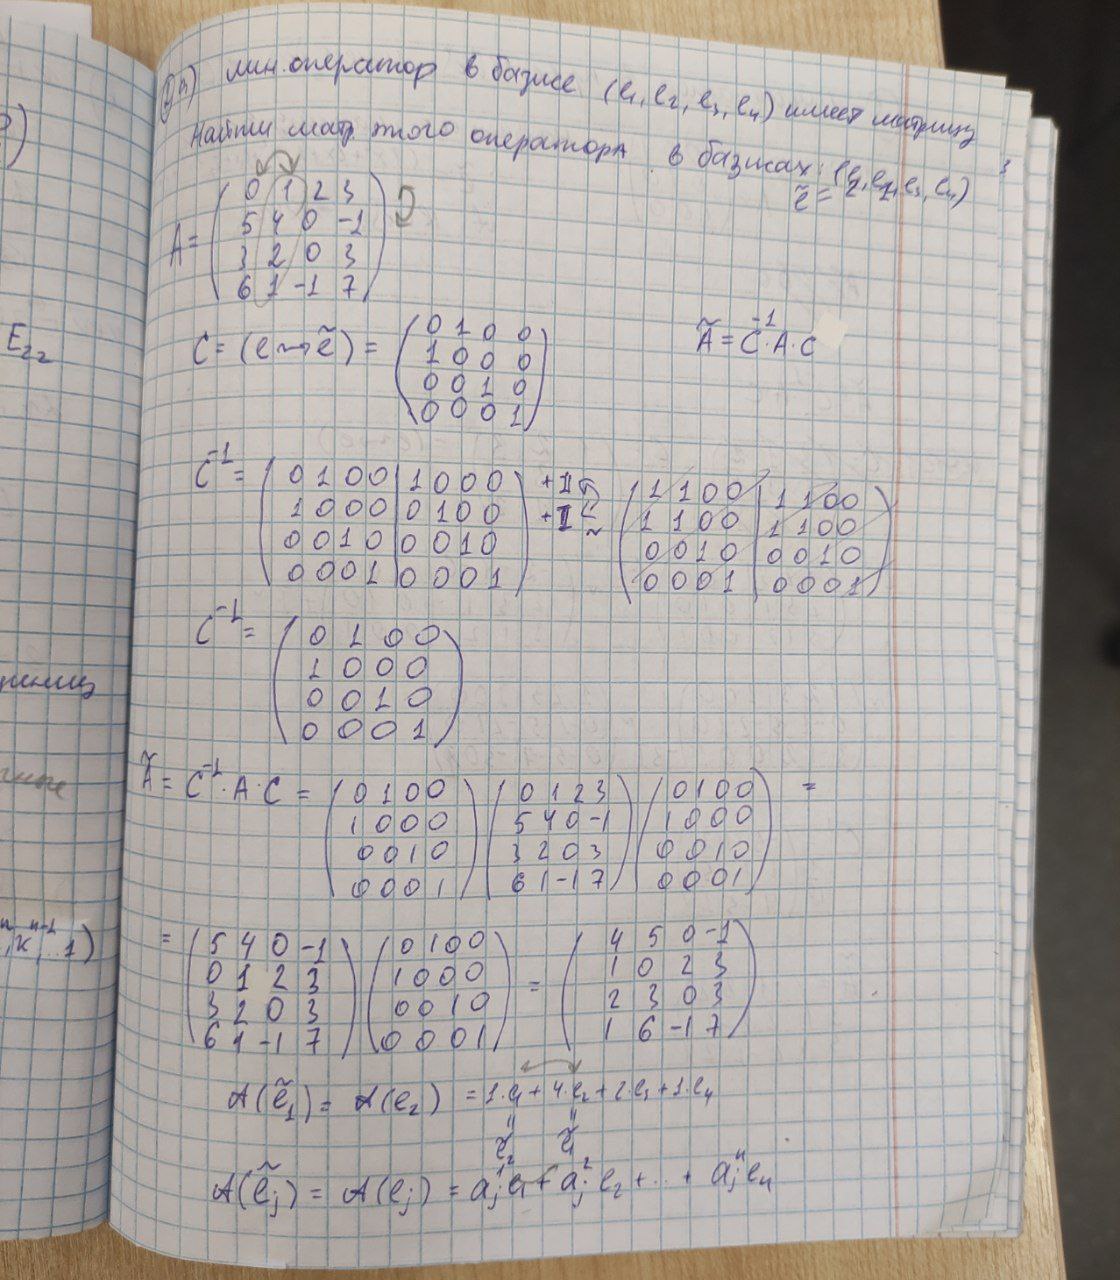 а) лин. оператор в базисе (e₁, e₂, e₃, e₄) имеет матрицу
Найти матр этого оператора в базисах: (e₂, e₁, e₃, e₄)
ẽ =
A = ( 0 1 2 3
5 4 0 -1
3 2 0 3
6 1 -1 7 )
C = (e ⇝ ẽ) = ( 0 1 0 0
1 0 0 0
0 0 1 0
0 0 0 1 )
Ã = C⁻¹·A·C
C⁻¹ = ( 0 1 0 0 | 1 0 0 0
1 0 0 0 | 0 1 0 0
0 0 1 0 | 0 0 1 0
0 0 0 1 | 0 0 0 1 )
+II
+I
~ ( 1 1 0 0 | 1 1 0 0
1 1 0 0 | 1 1 0 0
0 0 1 0 | 0 0 1 0
0 0 0 1 | 0 0 0 1 )
C⁻¹ = ( 0 1 0 0
1 0 0 0
0 0 1 0
0 0 0 1 )
Ã = C⁻¹·A·C = ( 0 1 0 0 ) ( 0 1 2 3 ) ( 0 1 0 0 ) =
1 0 0 0 5 4 0 -1 1 0 0 0
0 0 1 0 3 2 0 3 0 0 1 0
0 0 0 1 6 1 -1 7 0 0 0 1
= ( 5 4 0 -1 ) ( 0 1 0 0 ) = ( 4 5 0 -1 )
0 1 2 3 1 0 0 0 1 0 2 3
3 2 0 3 0 0 1 0 2 3 0 3
6 1 -1 7 0 0 0 1 1 6 -1 7
A(ẽ₁) = A(e₂) = 1·e₁ + 4·e₂ + 2·e₃ + 1·e₄
" "
ẽ₂ ẽ₁
A(ẽⱼ) = A(eⱼ) = aⱼ¹e₁ + aⱼ²e₂ + ... + aⱼⁿeₙ
E₂₂